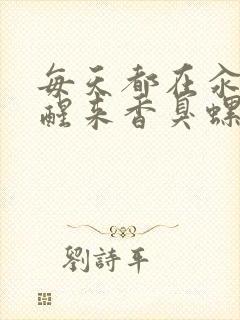 每天都在
醒来香臭螺
劉詩平